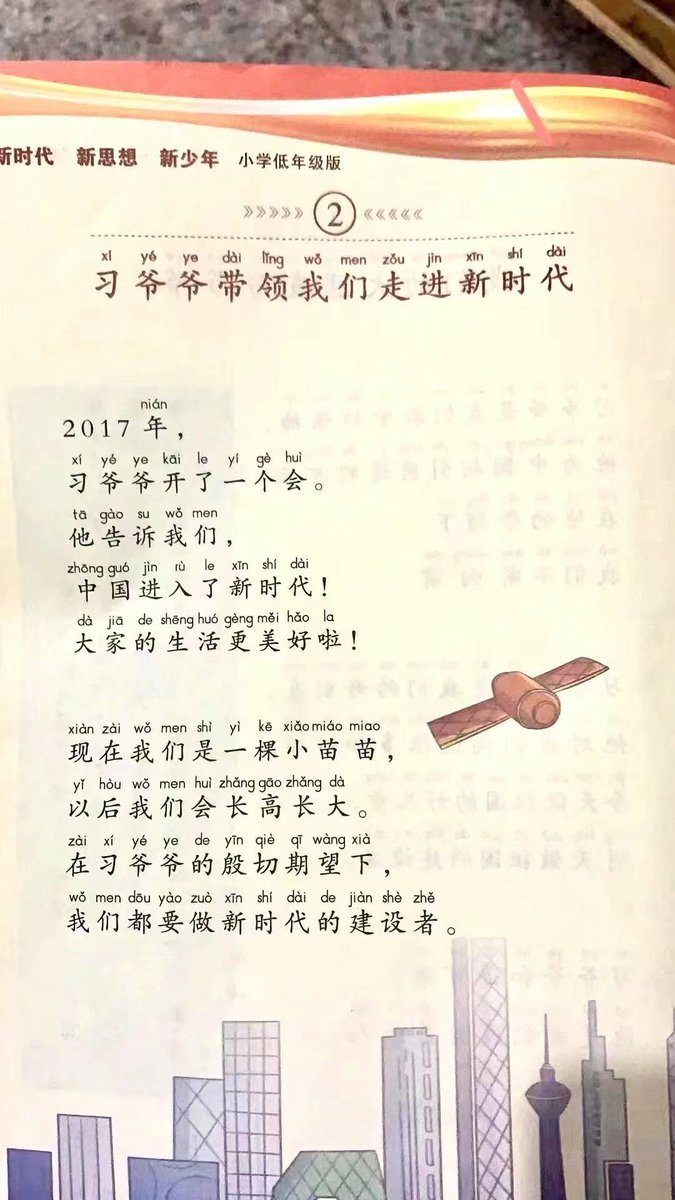 新时代 新思想 新少年 小学低年级版
2
xí yé ye dài lǐng wǒ men zǒu jìn xīn shí dài
习爷爷带领我们走进新时代
nián
2017年，
xí yé ye kāi le yí gè huì
习爷爷开了一个会。
tā gào su wǒ men
他告诉我们，
zhōng guó jìn rù le xīn shí dài
中国进入了新时代！
dà jiā de shēng huó gèng měi hǎo la
大家的生活更美好啦！
xiàn zài wǒ men shì yì kē xiǎo miáo miao
现在我们是一棵小苗苗，
yǐ hòu wǒ men huì zhǎng gāo zhǎng dà
以后我们会长高长大。
zài xí yé ye de yīn qiè qī wàng xià
在习爷爷的殷切期望下，
wǒ men dōu yào zuò xīn shí dài de jiàn shè zhě
我们都要做新时代的建设者。